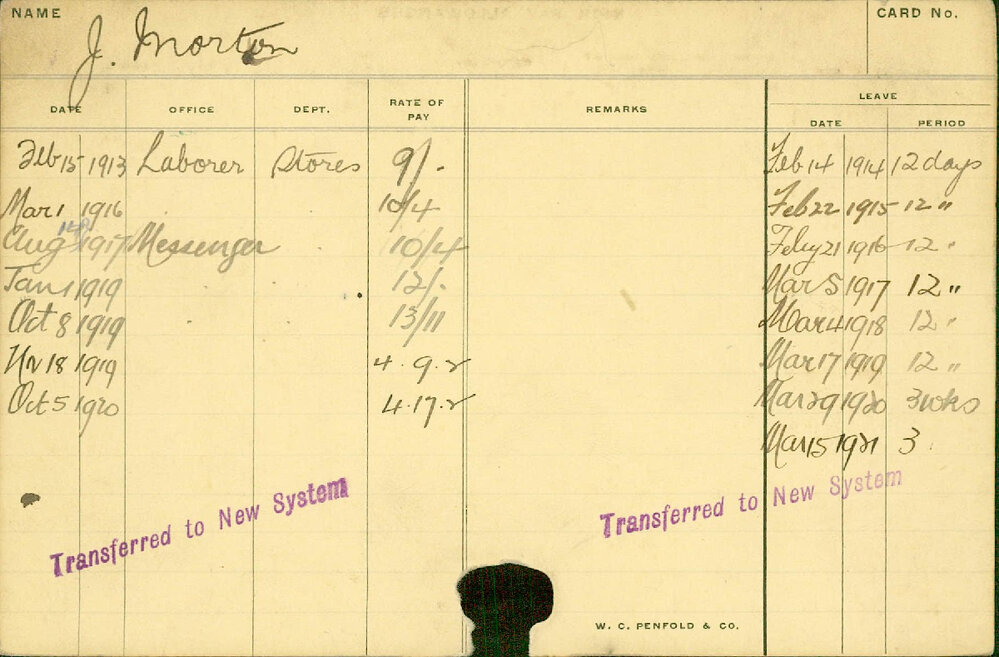 NAME CARD No.
J. Morton
LEAVE
DATE OFFICE DEPT. RATE OF PAY REMARKS DATE PERIOD
Feb 15 1913 Laborer Stores 9/- Feb 14 1914 12 days
Mar 1 1916 10/4 Feb 22 1915 12 "
Aug 1917 Messenger 10/4 Feby 21 1916 12 "
Jan 1 1919 12/- Mar 5 1917 12 "
Oct 8 1919 13/11 Mar 4 1918 12 "
Nv 18 1919 4.9.2 Mar 17 1919 12 "
Oct 5 1920 4.17.2 Mar 29 1920 3 wks
Mar 15 1921 3
Transferred to New System
Transferred to New System
W. C. PENFOLD & CO.